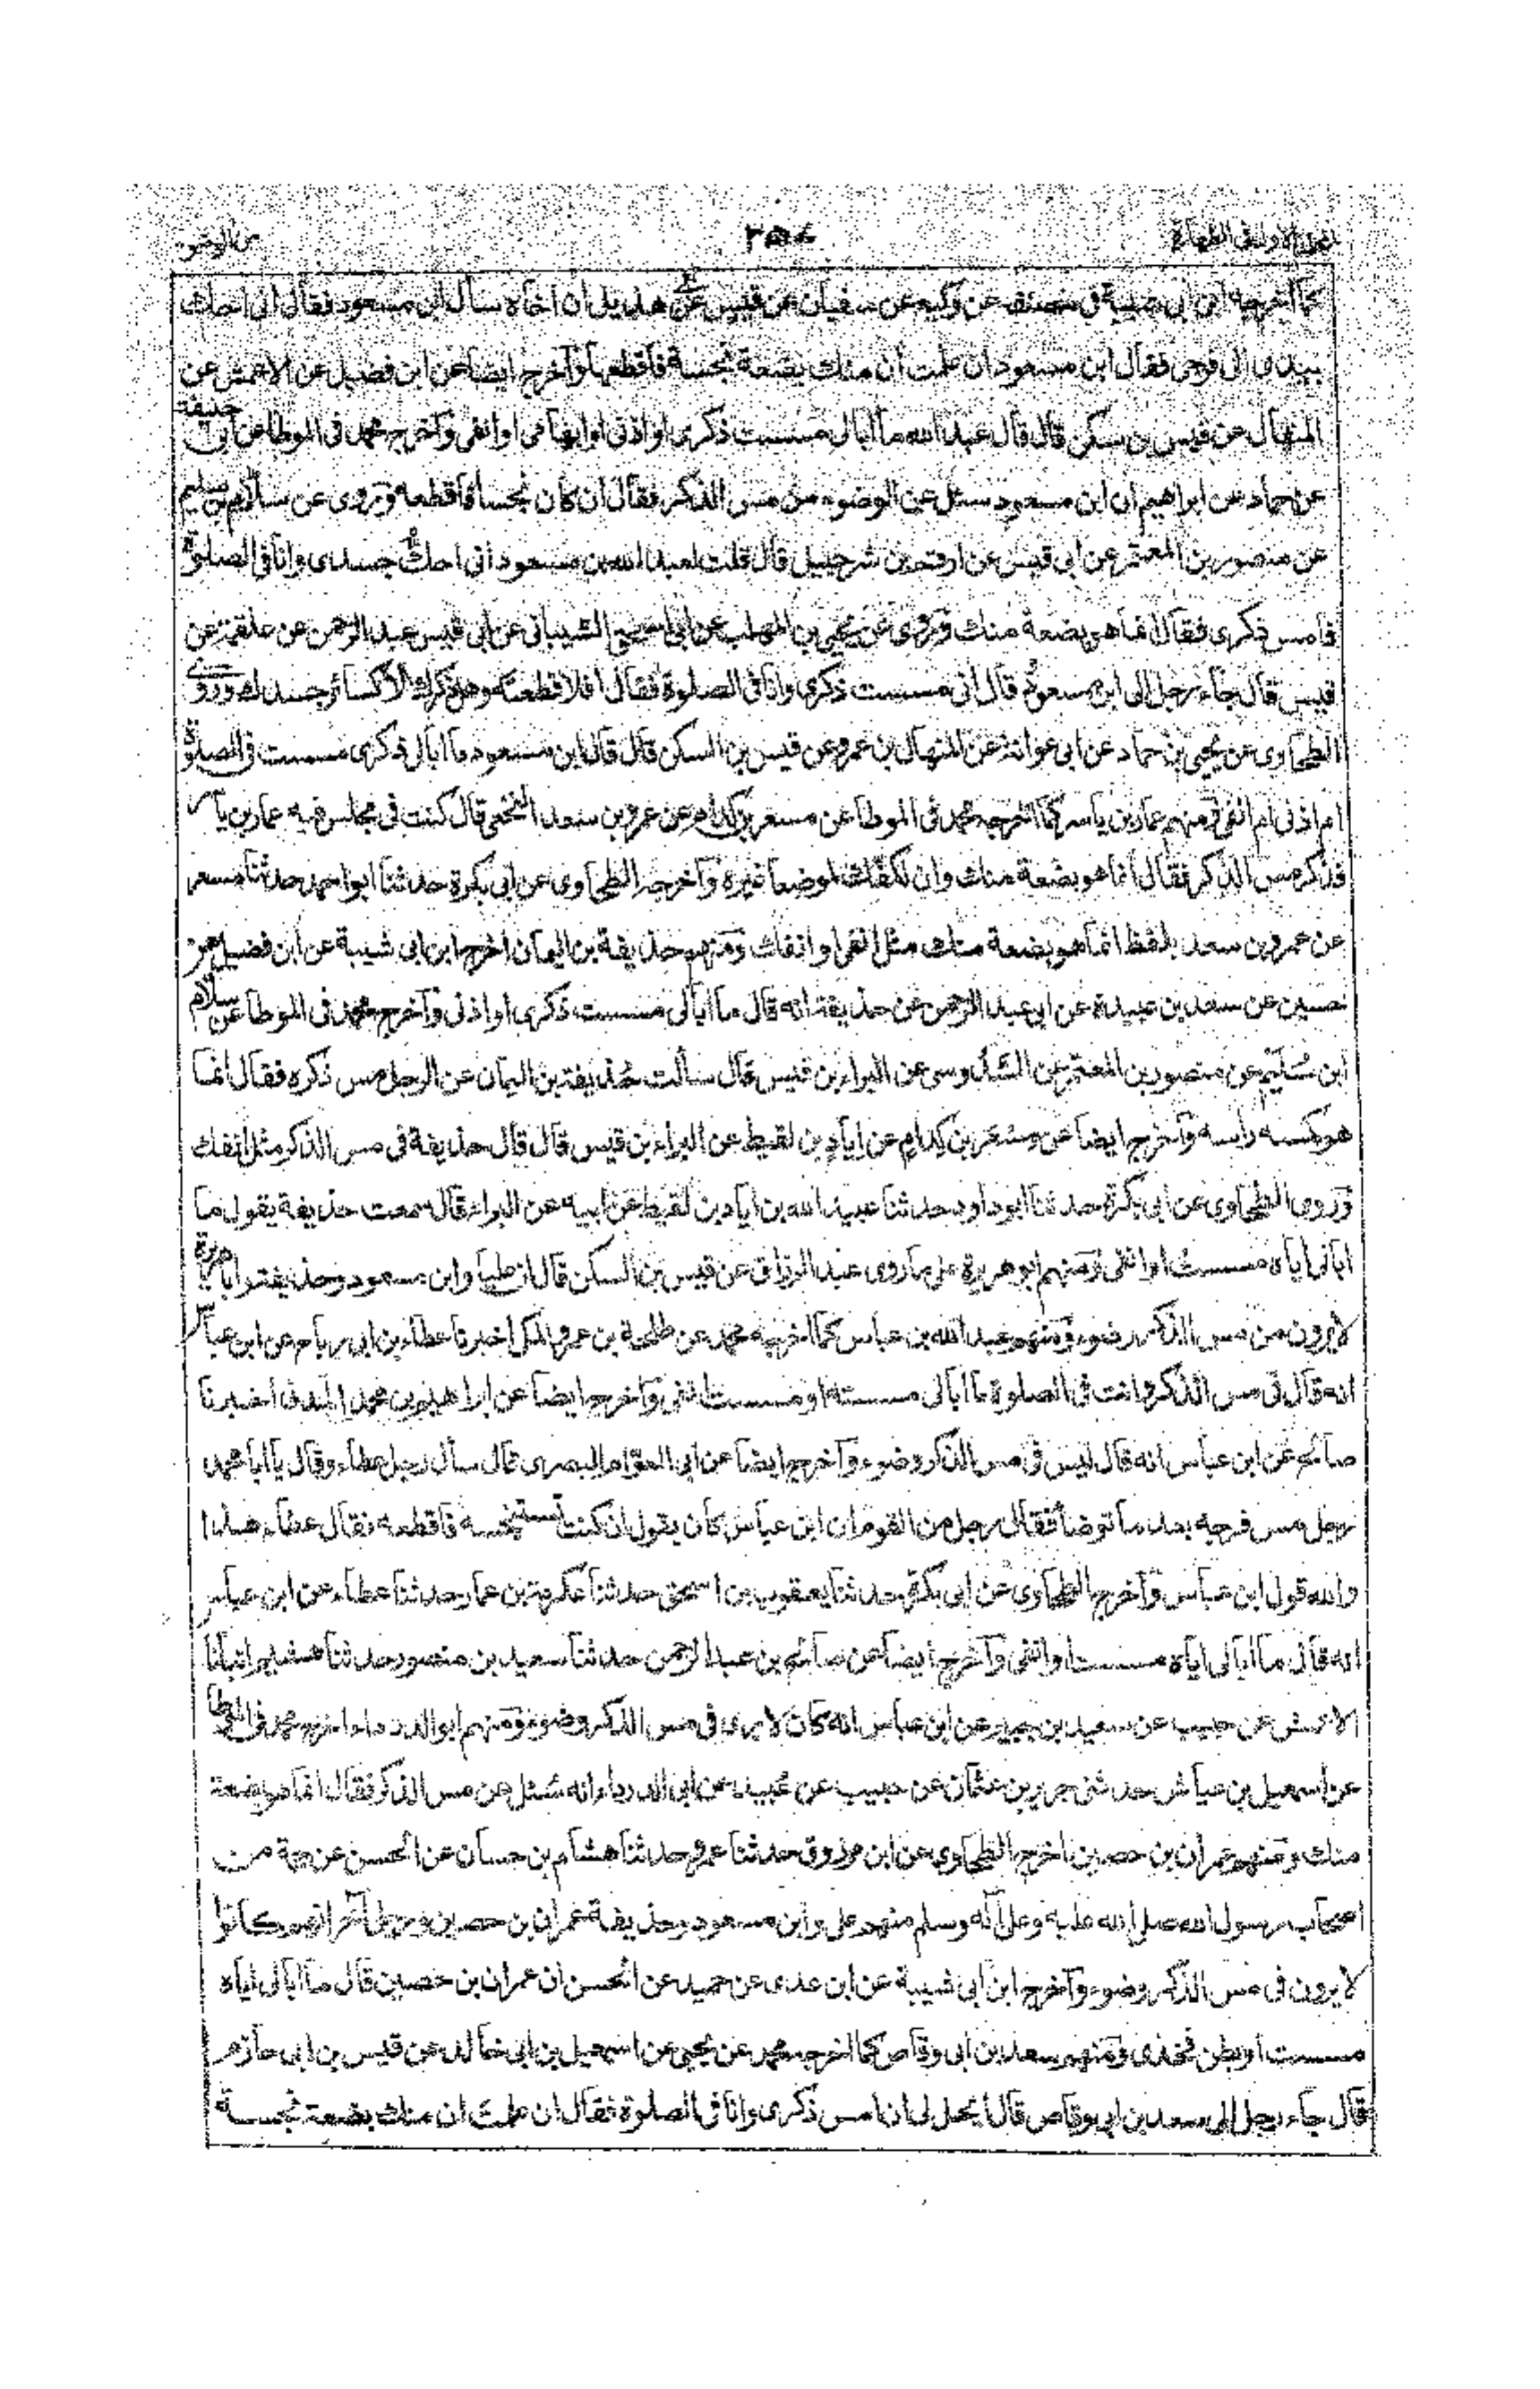 كما اخرجه ابن ابى شيبة فى مصنفه عن وكيع عن سفيان عن قيس عن هذيل ان اخاه سأل ابن مسعود فقال انى احك
بيدى الى فرجى فقال ابن مسعود ان علمت ان منك بضعة نجسة فاقطعها وآخرج ايضا عن ابن فضيل عن الاعمش عن
المنهال عن قيس بن سكن قال قال عبد الله ما ابالى مسست ذكرى او اذنى او ابهامى او انفى وآخرج محمد فى الموطا عن ابى حنيفة
عن حماد عن ابراهيم ان ابن مسعود سئل عن الوضوء من مس الذكر فقال ان كان نجسا فاقطعه وروى عن سلام بن سليم
عن منصور بن المعتمر عن ابى قيس عن ارقم بن شرحبيل قال قلت لعبد الله بن مسعود انى احك جسدى وانا فى الصلوة
فامس ذكرى فقال انما هو بضعة منك وروى عن يحيى بن المهلب عن ابى اسحق الشيبانى عن ابى قيس عبد الرحمن عن علقمة عن
قيس قال جاء رجل الى ابن مسعود قال انى مسست ذكرى وانا فى الصلوة فقال افلا قطعته وهل ذكرك الا كسائر جسدك وروى
الطحاوى عن يحيى بن حماد عن ابى عوانة عن المنهال بن عمرو عن قيس بن السكن قال قال ابن مسعود ما ابالى ذكرى مسست فى الصلوة
ام اذنى ام انفى ومنهم عمار بن ياسر كما اخرجه محمد فى الموطا عن مسعر بن كدام عن عمر بن سعد النخعى قال كنت فى مجلس فيه عمار بن ياسر
فذكر مس الذكر فقال انما هو بضعة منك وان لكفك لموضعا غيره وآخرجه الطحاوى عن ابى بكرة حدثنا ابو احمد حدثنا مسعر
عن عمر بن سعد بلفظ انما هو بضعة منك مثل انفى او انفك ومنهم حذيفة بن اليمان اخرج ابن ابى شيبة عن ابن فضيل عن
حصين عن سعد بن عبيدة عن ابى عبد الرحمن عن حذيفة انه قال ما ابالى مسست ذكرى او اذنى وآخرج محمد فى الموطا عن سلام
ابن سليم عن منصور بن المعتمر عن السدوسى عن البراء بن قيس قال سألت حذيفة بن اليمان عن الرجل مس ذكره فقال انما
هو كمسه رأسه وآخرج ايضا عن مسعر بن كدام عن اياد بن لقيط عن البراء بن قيس قال قال حذيفة فى مس الذكر مثل انفك
وروى الطحاوى عن ابى بكرة حدثنا ابو داود حدثنا عبيد الله بن اياد بن لقيط عن ابيه عن البراء قال سمعت حذيفة يقول ما
ابالى اياه مسست او انفى ومنهم ابو هريرة على ما روى عبد الرزاق عن قيس بن السكن قال ان عليا وابن مسعود وحذيفة وابا هريرة
لا يرون من مس الذكر وضوء ومنهم عبد الله بن عباس كما اخرجه محمد عن طلحة بن عمرو المكى اخبرنا عطاء بن ابى رباح عن ابن عباس
انه قال فى مس الذكر وانت فى الصلوة ما ابالى مسسته او مسست انفى وآخرج ايضا عن ابراهيم بن محمد المدنى اخبرنا
صالح عن ابن عباس انه قال ليس فى مس الذكر وضوء وآخرج ايضا عن ابى العوام البصرى قال سأل رجل عطاء وقال يا ابا محمد
رجل مس فرجه بعد ما توضأ فقال رجل من القوم ان ابن عباس كان يقول ان كنت تستنجسه فاقطعه فقال عطاء هذا
والله قول ابن عباس وآخرج الطحاوى عن ابى بكرة حدثنا يعقوب بن اسحق حدثنا عكرمة بن عمار حدثنا عطاء عن ابن عباس
انه قال ما ابالى اياه مسست او انفى وآخرج ايضا عن صالح بن عبد الرحمن حدثنا سعيد بن منصور حدثنا هشيم انبأنا
الاعمش عن حبيب عن سعيد بن جبير عن ابن عباس انه كان لا يرى فى مس الذكر وضوء ومنهم ابو الدرداء اخرج محمد فى الموطا
عن اسمعيل بن عياش حدثنى جرير بن عثمان عن حبيب عن عبيد عن ابى الدرداء انه سئل عن مس الذكر فقال انما هو بضعة
منك ومنهم عمران بن حصين اخرج الطحاوى عن ابن مرزوق حدثنا عمرو حدثنا هشام بن حسان عن الحسن عن خمسة من
اصحاب رسول الله صلى الله عليه وعلى آله وسلم منهم على وابن مسعود وحذيفة وعمران بن حصين ورجل آخر انهم كانوا
لا يرون فى مس الذكر وضوء وآخرج ابن ابى شيبة عن ابن عدى عن حميد عن الحسن ان عمران بن حصين قال ما ابالى اياه
مسست او بطن فخذى ومنهم سعد بن ابى وقاص كما اخرجه محمد عن يحيى عن اسمعيل بن ابى خالد عن قيس بن ابى حازم
قال جاء رجل الى سعد بن ابى وقاص قال أيحل لى ان امس ذكرى وانا فى الصلوة فقال ان علمت ان منك بضعة نجسة